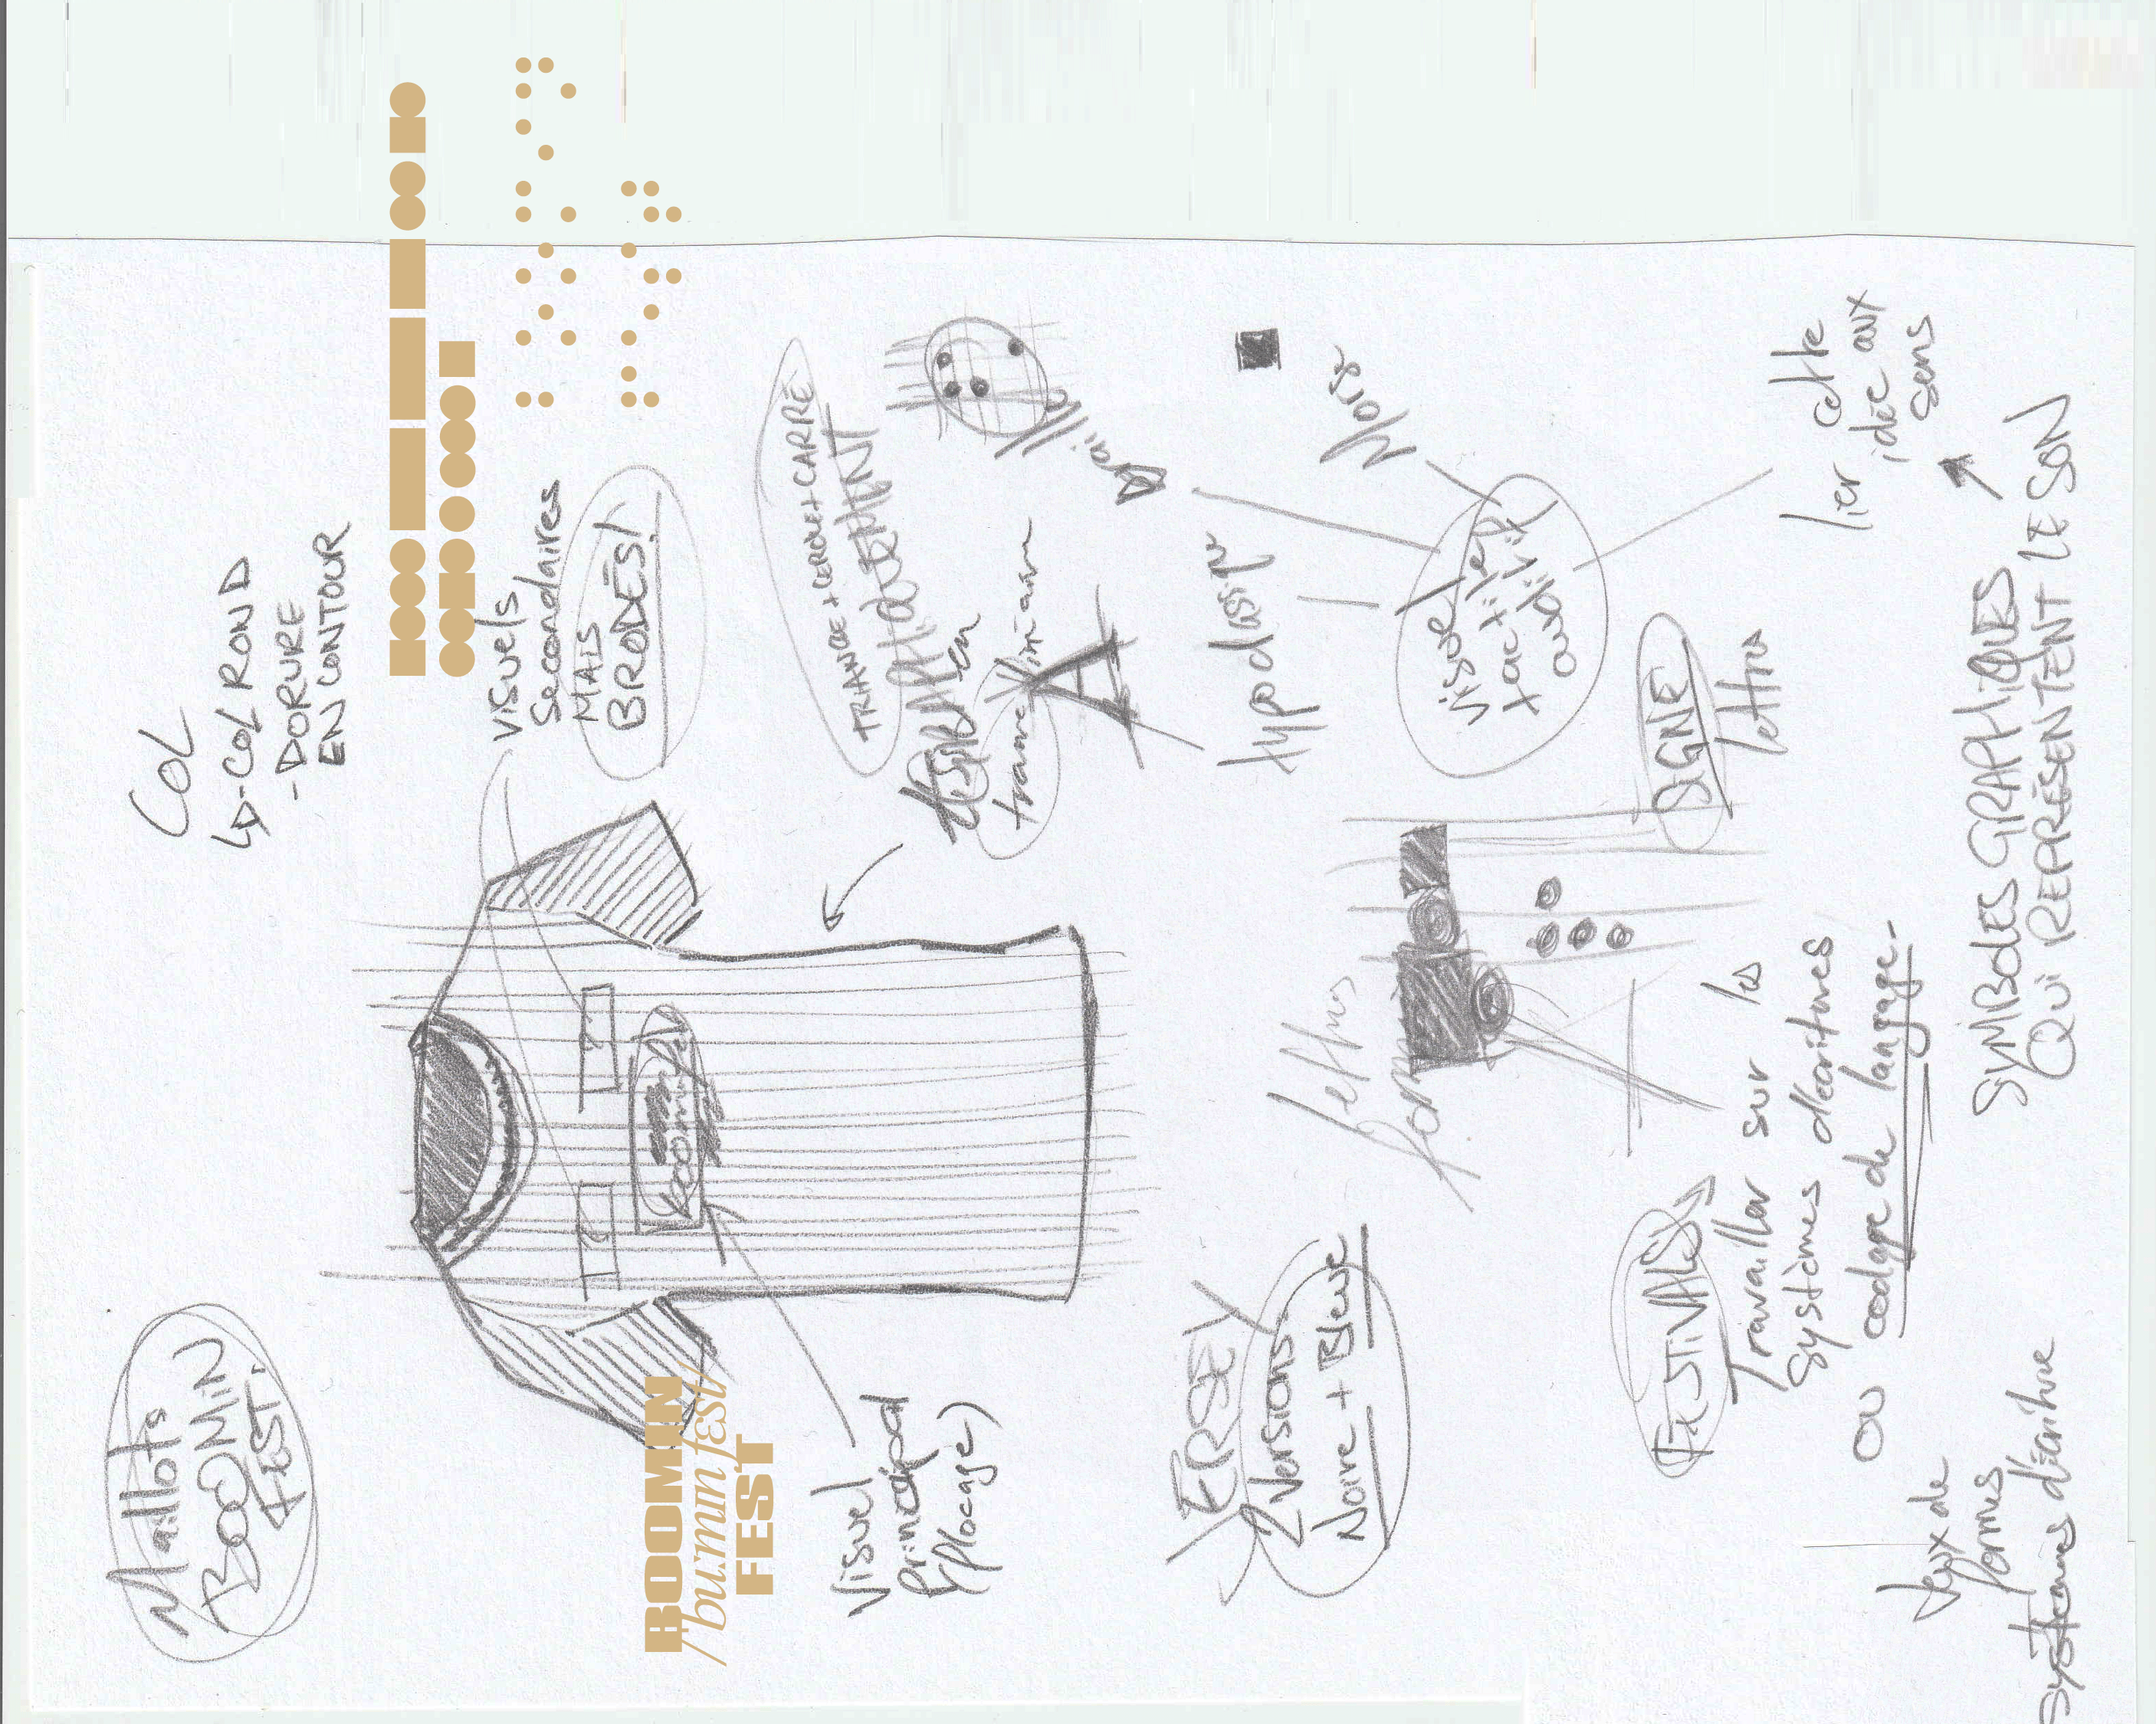 Maillots
BOOMIN
FEST.
COL
↳-COL ROND
- DORURE
EN CONTOUR
visuels
secondaires
MAIS
BRODÉS!
BOOMIN
/bumın fɛst/
FEST
Visuel
Principal
(flocage)
TRIANGLE + CERCLE + CARRÉ
en
trame
A
Braille
JERSEY
2 versions
Noire + Bleue
typo classique
Morse
visuel
tactile
auditif
lettres
form
SIGNE
lettres
lier cette
idée aux
sens
FESTIVALS
Travailler sur les
systèmes d'écritures
ou codage de langage-
Jeux de
formes
systèmes d'écriture
SYMBOLES GRAPHIQUES
QUI REPRÉSENTENT LE SON